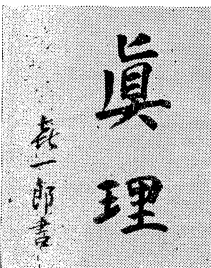 眞理
㐂一郎書